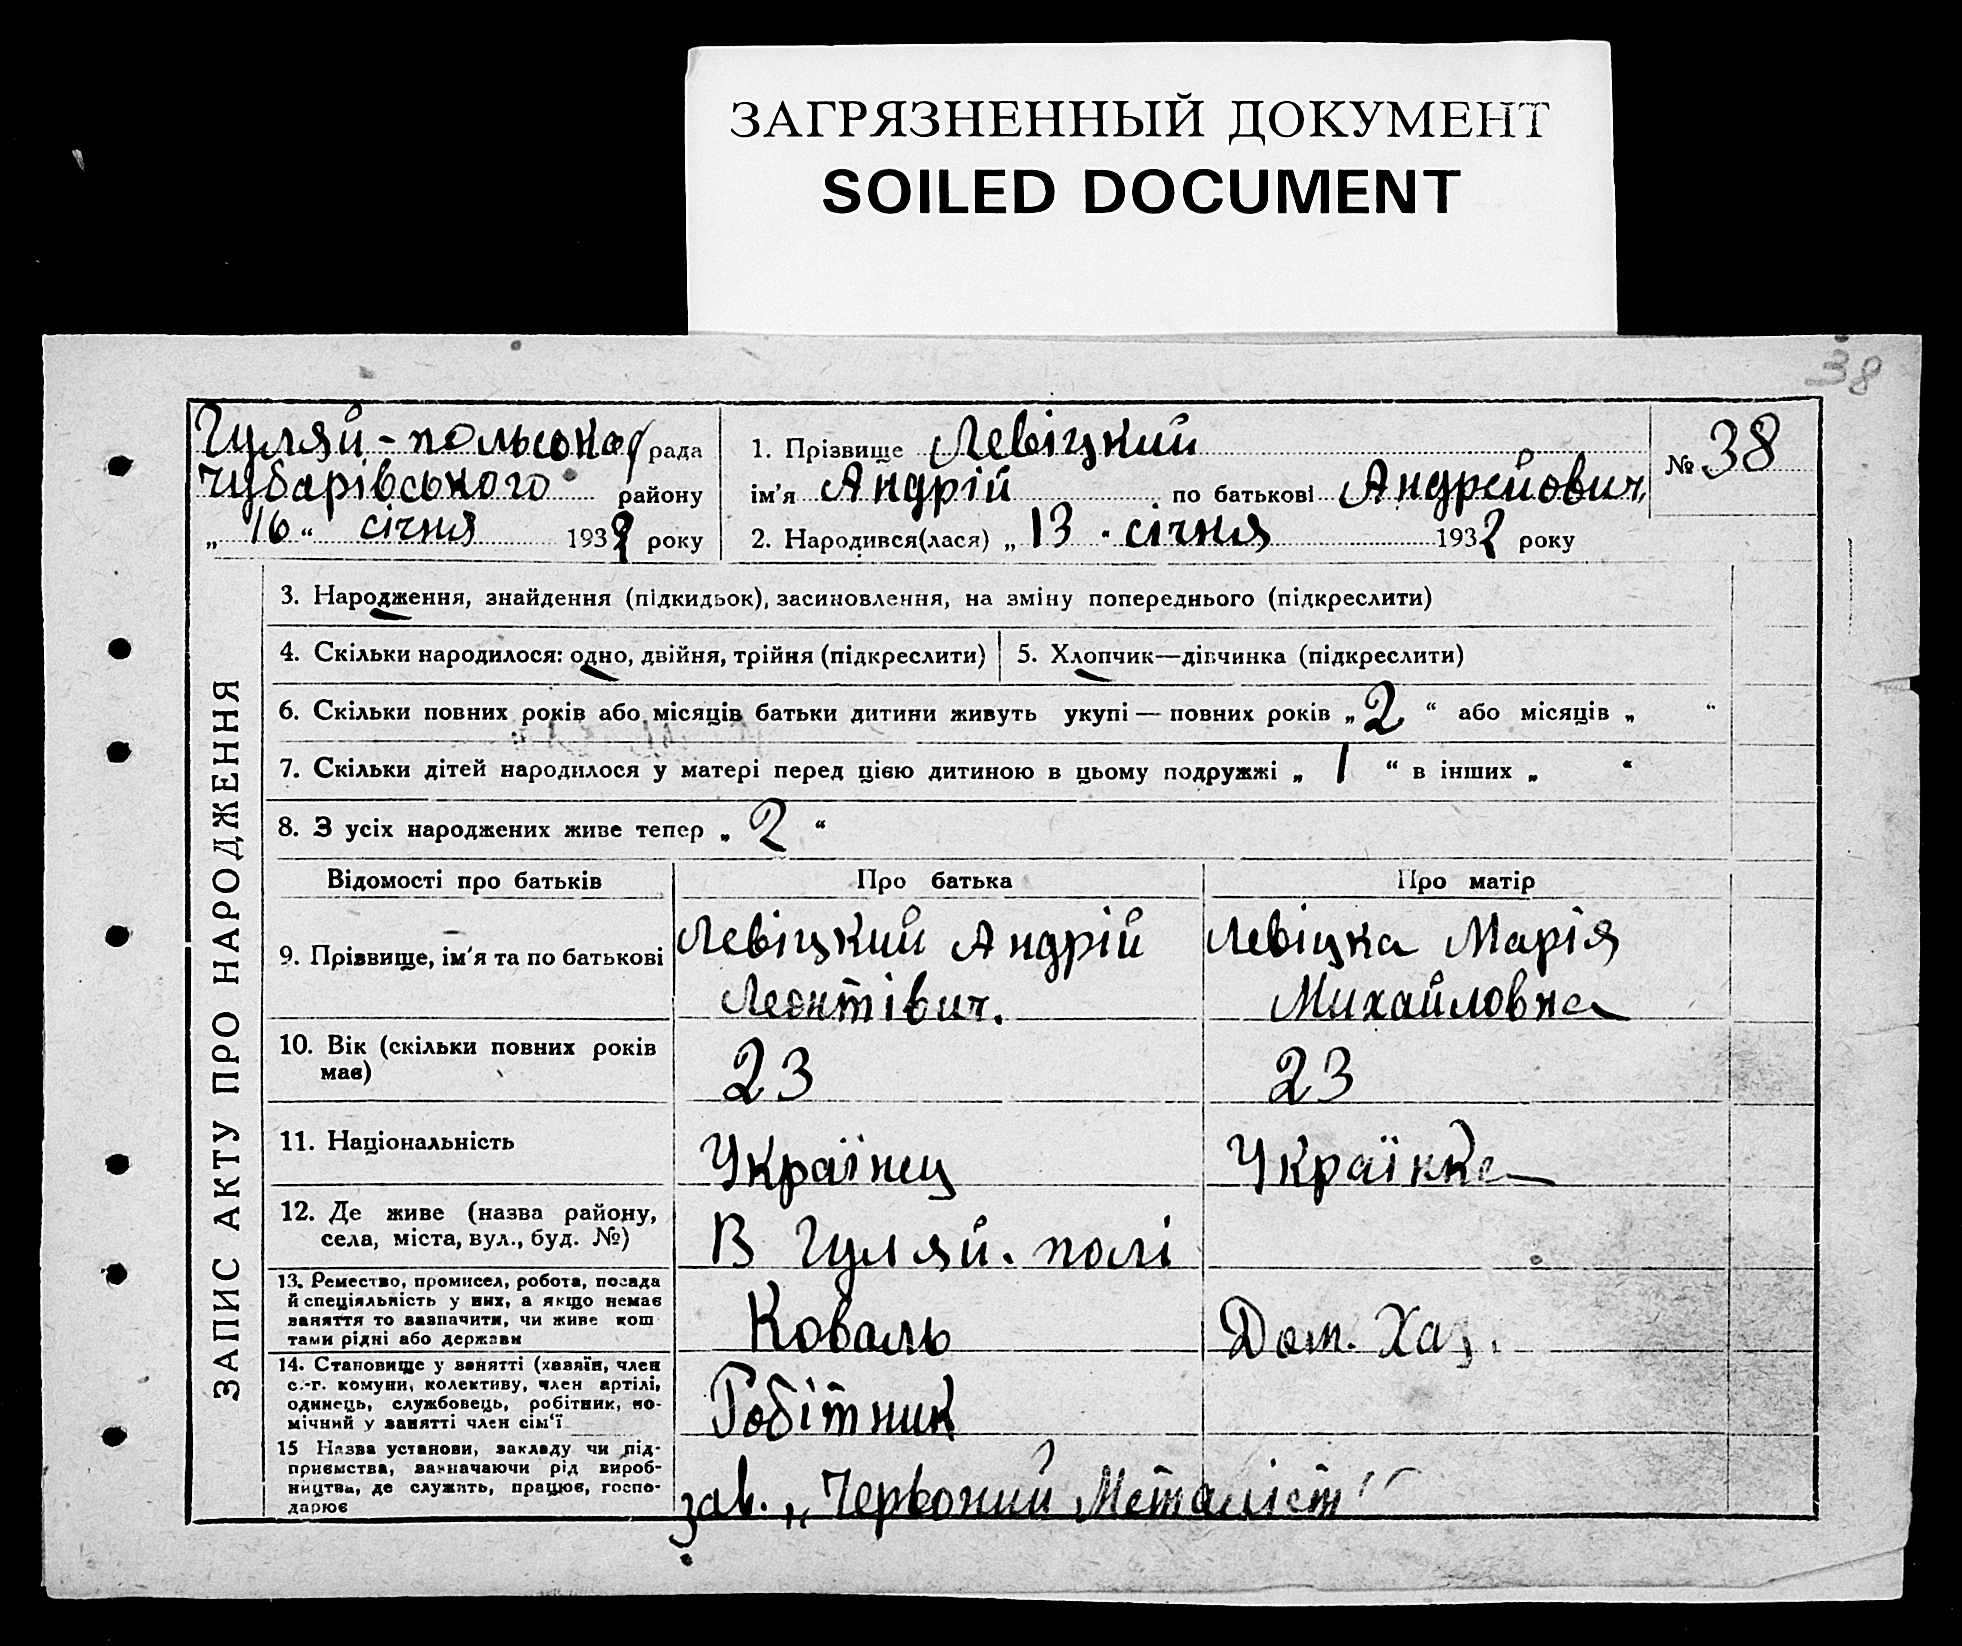 ЗАГРЯЗНЕННЫЙ ДОКУМЕНТ
SOILED DOCUMENT
38
Гуляй-польська рада
Чубарівського району
„ 16 “ січня 1932 року
1. Прізвище Левіцкий
ім'я Андрій по батькові Андрейович
2. Народився(лася) „ 13 . січня 1932 року
№ 38
ЗАПИС АКТУ ПРО НАРОДЖЕННЯ
3. Народження, знайдення (підкидьок), засиновлення, на зміну попереднього (підкреслити)
4. Скільки народилося: одно, двійня, трійня (підкреслити)
5. Хлопчик—дівчинка (підкреслити)
6. Скільки повних років або місяців батьки дитини живуть укупі — повних років „ 2 “ або місяців „ “
7. Скільки дітей народилося у матері перед цією дитиною в цьому подружжі „ 1 “ в інших „ “
8. З усіх народжених живе тепер „ 2 “
Відомості про батьків
Про батька
Про матір
9. Прізвище, ім'я та по батькові
Левіцкий Андрій
Леонтівич.
Левіцка Марія
Михайловна
10. Вік (скільки повних років
має)
23
23
11. Національність
Українец
Українка
12. Де живе (назва району,
села, міста, вул., буд. №)
В Гуляй. полі
13. Ремество, промисел, робота, посада
й спеціяльність у них, а якщо немає
заняття то зазначити, чи живе кош
тами рідні або держави
Коваль
Дом. Хаз.
14. Становище у занятті (хазяїн, член
с.-г. комуни, колективу, член артілі,
одинець, службовець, робітник, по-
мічний у занятті член сім'ї
Робітник
15 Назва установи, закладу чи під-
приємства, зазначаючи рід вироб-
ництва, де служить, працює, госпо-
дарює
зав. „Червоний Металіст"